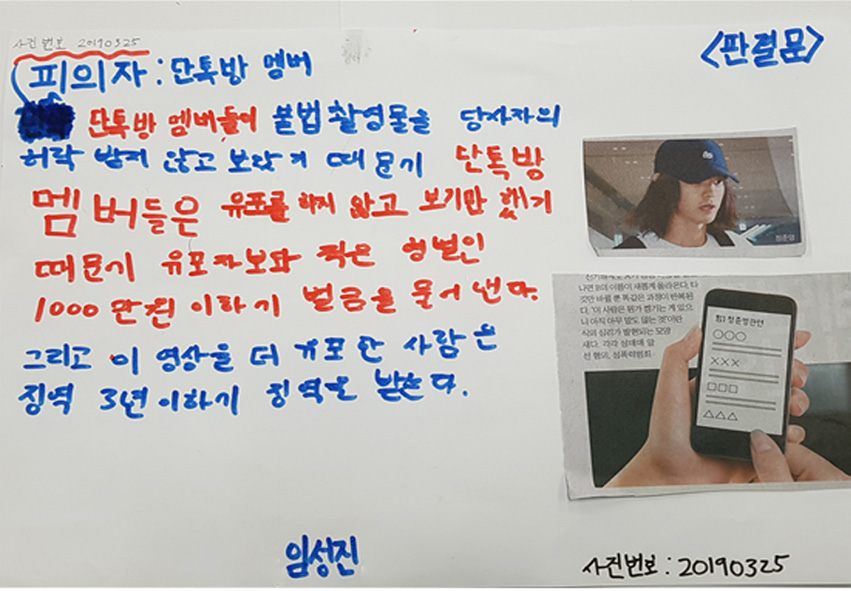 사건 번호 20190325
<판결문>
피의자 : 단톡방 멤버
단톡방 멤버들이 불법 촬영물을 당사자의
허락 받지 않고 보았기 때문에 단톡방
멤버들은 유포를 하지 않고 보기만 했기
때문에 유포자보다 작은 형벌인
1000만원 이하의 벌금을 물어 낸다.
그리고 이 영상을 더 유포한 사람은
징역 3년 이하의 징역을 받는다.
정준영
나면 B의 이름이 새롭게 올라온다. 타
깃만 바뀔 뿐 똑같은 과정이 반복된
다. '이 사람은 뭔가 챙기는 게 있으
니 아직 아무 말도 않는 것'이란
식의 심리가 발현되는 모양
새다. 각각 성매매 알
선 혐의, 성폭력범죄
정준영관련
○○○
×××
□□□
△△△
임성진
사건번호 : 20190325